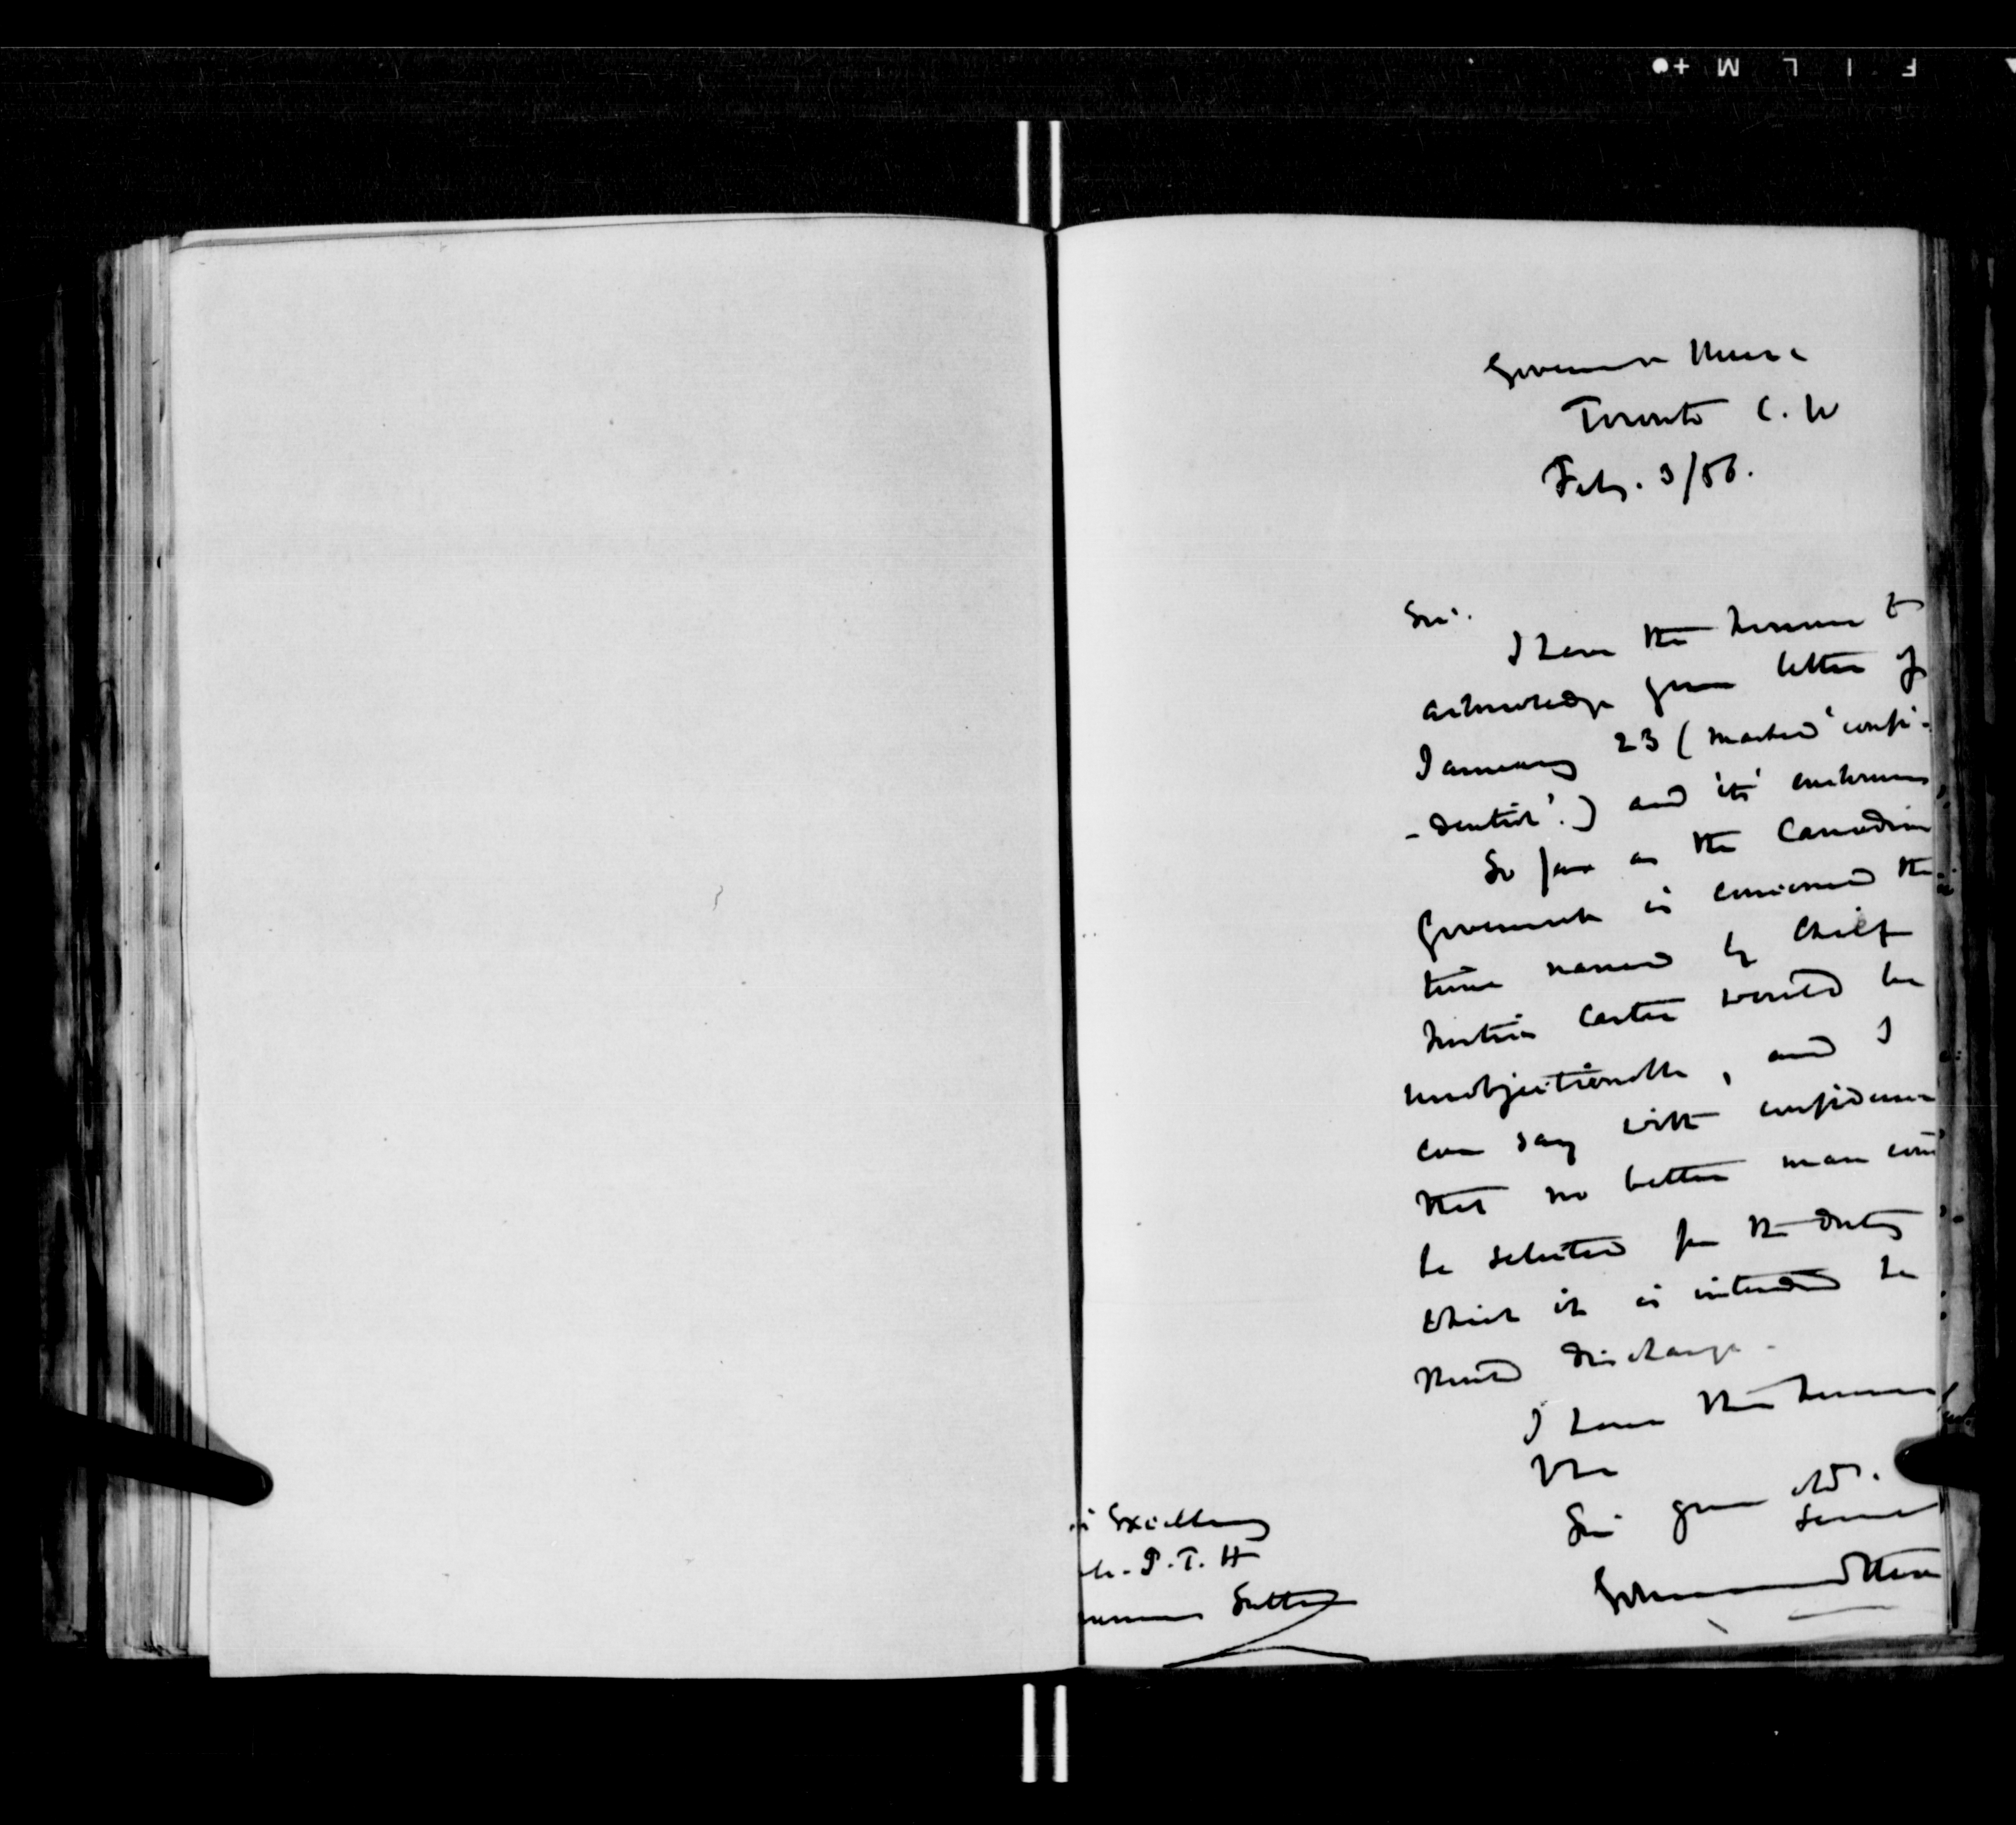 F I L M
Government House
Toronto C. W
Feby. 3/56.
Sir.
I have the honor to
acknowledge your letter of
January 23 (marked 'confi-
-dential'.) and its enclosures
So far as the Canadian
Government is concerned the
time named by Chief
Justice Carter would be
unobjectionable, and I
can say with confidence
that no better man could
be selected for the duty
which it is intended he
should discharge.
I have the honor
to be
Sir your obt.
Servt
Excellency
J. T. H
Sutton